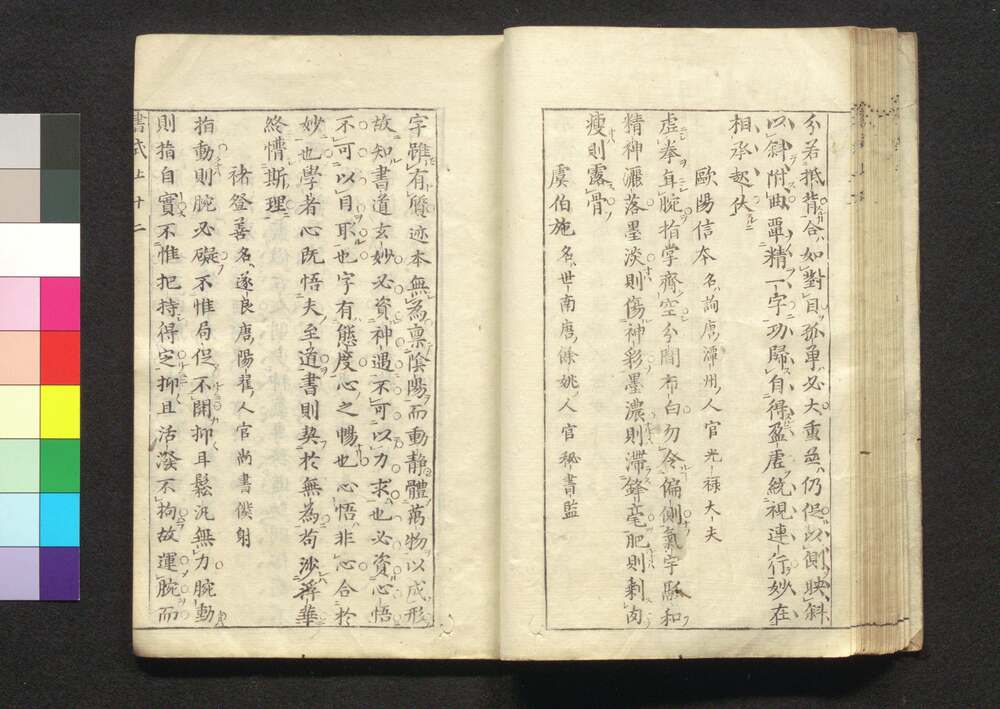 分若抵背合如對目孤單必大重並仍促以側映斜
以斜附曲覃精一字功歸自得盈虛統視連行妙在
相承起伏
歐陽信本名詢唐潭州人官光祿大夫
虛拳直腕指掌齊空分間布白勿令偏側氣宇融和
精神灑落墨淡則傷神彩墨濃則滯鋒毫肥則剩肉
瘦則露骨
虞伯施名世南唐餘姚人官秘書監
字雖有質迹本無為稟陰陽而動靜體萬物以成形
故知書道玄妙必資神遇不可以力求也必資心悟
不可以目取也字有態度心之暢也心悟非心合於
妙也學者心既悟夫至道書則契於無為苟涉浮華
終懵斯理
褚登善名遂良唐陽翟人官尚書僕射
指動則腕必礙不惟局促不開抑耳鬆汎無力腕動
則指自實不惟把持得定抑且活潑不拘故運腕而
書式上十二